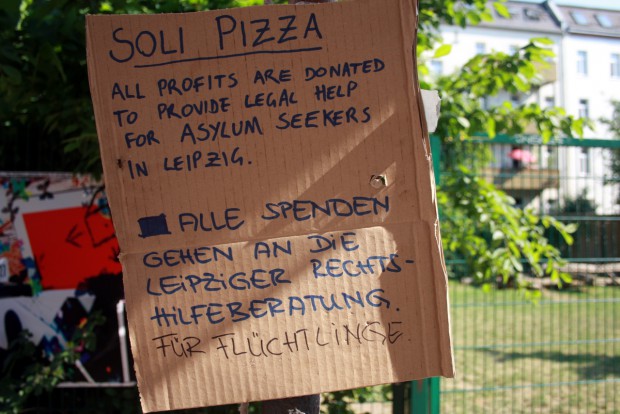 SOLI PIZZA
ALL PROFITS ARE DONATED
TO PROVIDE LEGAL HELP
FOR ASYLUM SEEKERS
IN LEIPZIG.
ALLE SPENDEN
GEHEN AN DIE
LEIPZIGER RECHTS-
HILFEBERATUNG.
FÜR FLÜCHTLINGE.